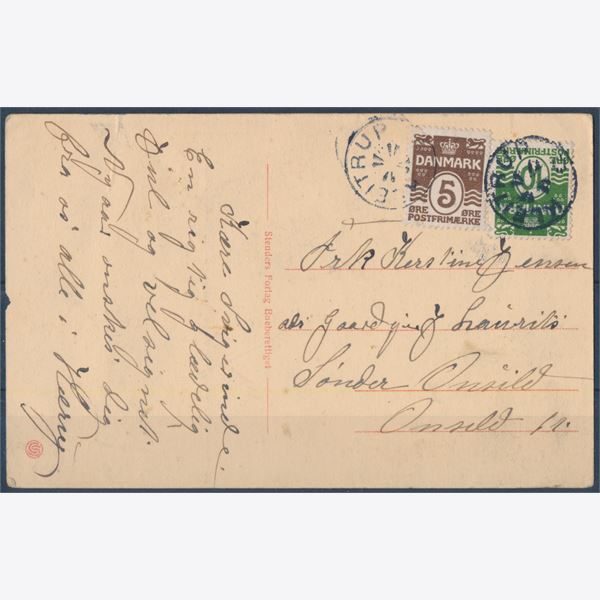 Kære Svigerinde.
En rigtig glædelig
Jul og velsignet
Nytaar ønskes dig
fra os alle i
Stenders Forlag Eneberettiget
EJTRUP
DANMARK
5
ØRE ØRE
POSTFRIMÆRKE
10
ØRE
POSTFRIMÆRKE
Frk Kerstine Jensen
adr Gaardejer J Laurits
Sønder Onsild
Onsild St.